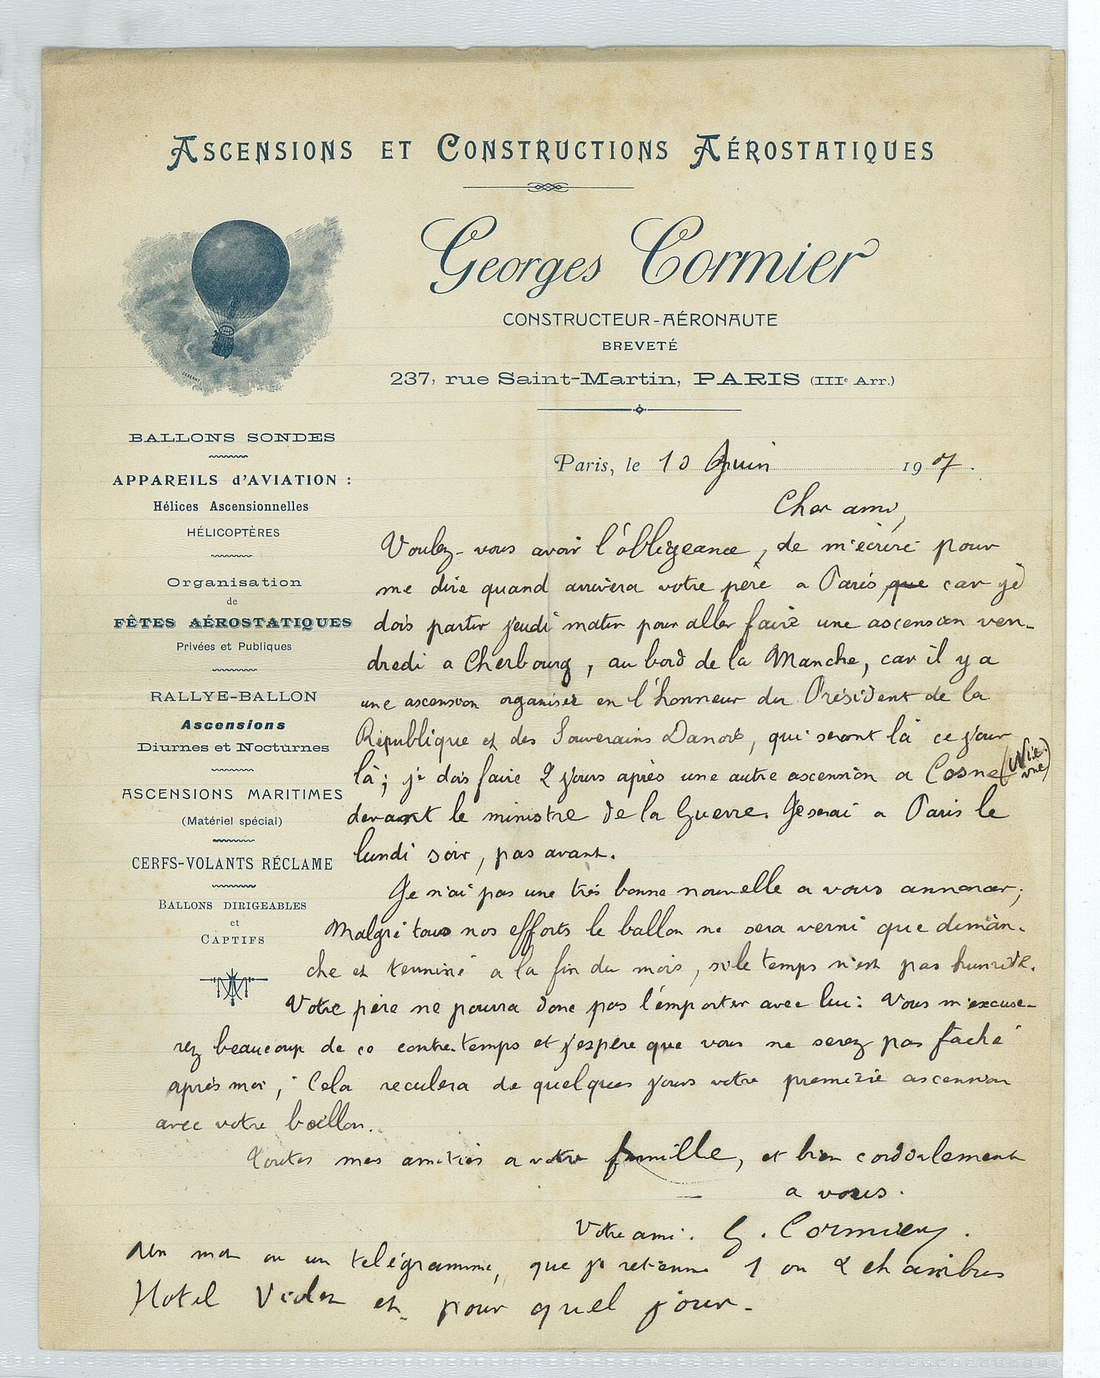 ASCENSIONS ET CONSTRUCTIONS AÉROSTATIQUES
Georges Cormier
CONSTRUCTEUR-AÉRONAUTE
BREVETÉ
237, rue Saint-Martin, PARIS (IIIe Arr.)
BALLONS SONDES
APPAREILS d'AVIATION :
Hélices Ascensionnelles
HÉLICOPTÈRES
Organisation
de
FÊTES AÉROSTATIQUES
Privées et Publiques
RALLYE-BALLON
Ascensions
Diurnes et Nocturnes
ASCENSIONS MARITIMES
(Matériel spécial)
CERFS-VOLANTS RÉCLAME
BALLONS DIRIGEABLES
et
CAPTIFS
Paris, le 10 Juin 1907.
Cher ami,
Voulez-vous avoir l'obligeance, de m'écrire pour
me dire quand arrivera votre père a Paris, que car je
dois partir jeudi matin pour aller faire une ascension ven-
dredi a Cherbourg, au bord de la Manche, car il y a
une ascension organisée en l'honneur du Président de la
République et des Souverains Danois, qui seront là ce jour
là; je dois faire 2 jours après une autre ascension a Cosne (Niè-
vre)
devant le ministre de la Guerre. Je serai a Paris le
lundi soir, pas avant.
Je n'ai pas une très bonne nouvelle a vous annoncer;
Malgré tous nos efforts le ballon ne sera verni que diman-
che et terminé a la fin du mois, si le temps n'est pas humide.
Votre père ne pourra donc pas l'emporter avec lui: Vous m'excuse-
rez beaucoup de ce contre-temps et j'espère que vous ne serez pas faché
après moi; Cela reculera de quelques jours votre première ascension
avec votre ballon.
Toutes mes amitiés a votre famille, et bien cordialement
a vous.
Votre ami. G. Cormier.
Un mot ou un télégramme, que je retienne 1 ou 2 chambres
Hotel Violet et pour quel jour.